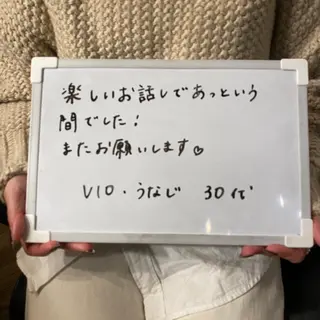 楽しいお話しであっという
間でした!
またお願いします♡
VIO・うなじ 30代